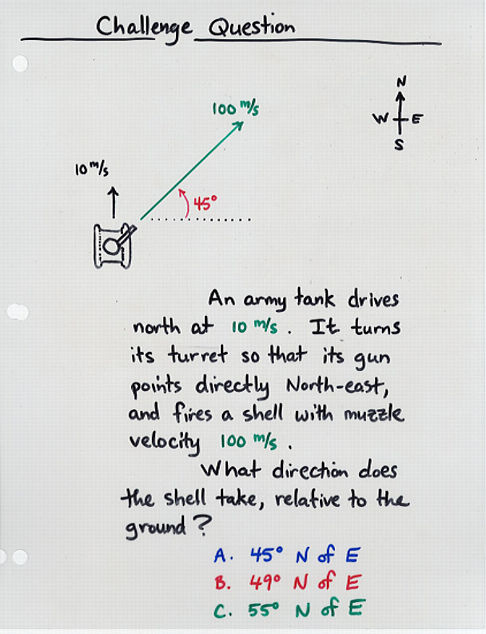 Challenge Question
N
100 m/s
W E
S
10 m/s
45°
An army tank drives
north at 10 m/s. It turns
its turret so that its gun
points directly North-east,
and fires a shell with muzzle
velocity 100 m/s.
What direction does
the shell take, relative to the
ground?
A. 45° N of E
B. 49° N of E
C. 55° N of E